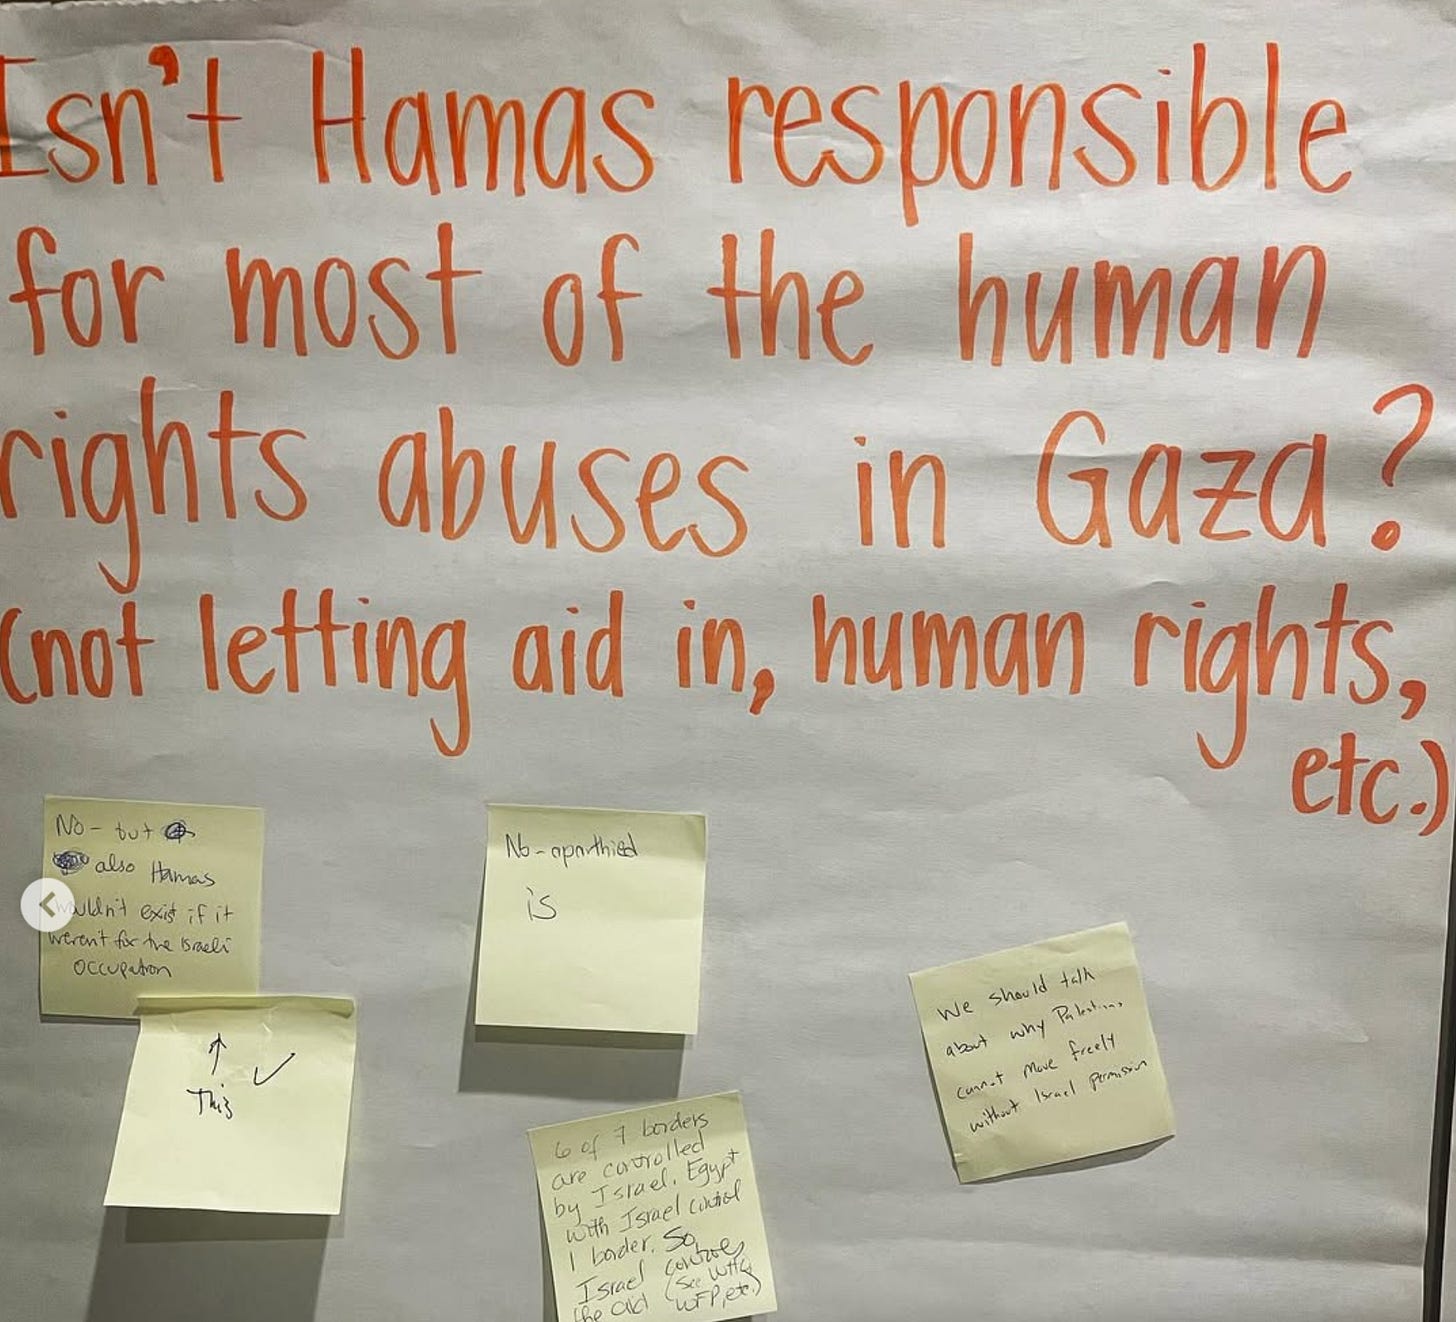 Isn't Hamas responsible
for most of the human
rights abuses in Gaza?
(not letting aid in, human rights,
etc.)
No - but
also Hamas
wouldn't exist if it
weren't for the Israeli
occupation
↑
This ✓
No - aparthied
is
6 of 7 borders
are controlled
by Israel. Egypt
with Israel control
1 border. So,
Israel controls
the aid (see WHO,
WFP, etc.)
We should talk
about why Palestinians
cannot move freely
without Israel permission